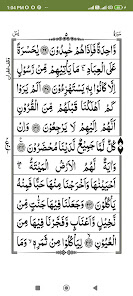 1:04 PM
وَاحِدَةً فَإِذَا هُمْ خٰمِدُوْنَ ﴿۲۹﴾ يٰحَسْرَةً
عَلَى الْعِبَادِ ۚ مَا يَأْتِيْهِمْ مِّنْ رَّسُوْلٍ
اِلَّا كَانُوْا بِهٖ يَسْتَهْزِءُوْنَ ﴿۳۰﴾ اَلَمْ يَرَوْا كَمْ
اَهْلَكْنَا قَبْلَهُمْ مِّنَ الْقُرُوْنِ
اَنَّهُمْ اِلَيْهِمْ لَا يَرْجِعُوْنَ ﴿۳۱﴾ وَاِنْ
كُلٌّ لَّمَّا جَمِيْعٌ لَّدَيْنَا مُحْضَرُوْنَ ﴿۳۲﴾
وَاٰيَةٌ لَّهُمُ الْاَرْضُ الْمَيْتَةُ ۖ
اَحْيَيْنٰهَا وَاَخْرَجْنَا مِنْهَا حَبًّا فَمِنْهُ
يَأْكُلُوْنَ ﴿۳۳﴾ وَجَعَلْنَا فِيْهَا جَنّٰتٍ مِّنْ
نَّخِيْلٍ وَّاَعْنَابٍ وَّفَجَّرْنَا فِيْهَا مِنَ
الْعُيُوْنِ ﴿۳۴﴾ لِيَأْكُلُوْا مِنْ ثَمَرِهٖ ۙ وَمَا